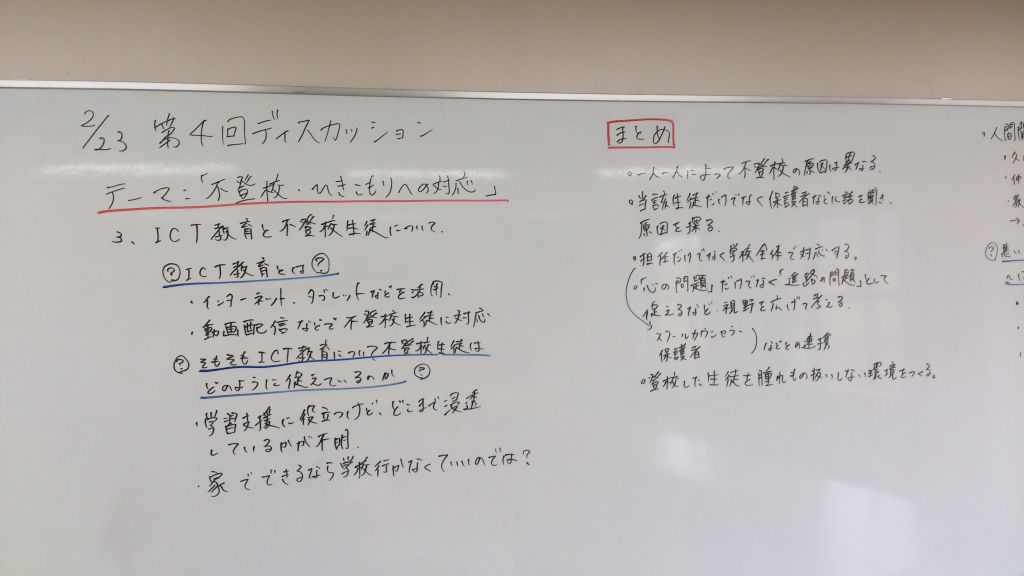 2/23 第4回ディスカッション
テーマ:「不登校・ひきこもりへの対応」
3、ICT教育と不登校生徒について.
?ICT教育とは?
・インターネット、タブレットなどを活用.
・動画配信などで不登校生徒に対応
?そもそもICT教育について不登校生徒は
どのように捉えているのか?
・学習支援に役立つけど、どこまで浸透
しているかが不明.
・家でできるなら学校行かなくていいのでは?
まとめ
○一人一人によって不登校の原因は異なる.
○当該生徒だけでなく保護者などに話を聞き、
原因を探る.
○担任だけでなく学校全体で対応する。
○「心の問題」だけでなく「進路の問題」として
捉えるなど、視野を広げて考える.
スクールカウンセラー
保護者
)などとの連携
○登校した生徒を腫れもの扱いしない環境をつくる。
・人間
?悪い